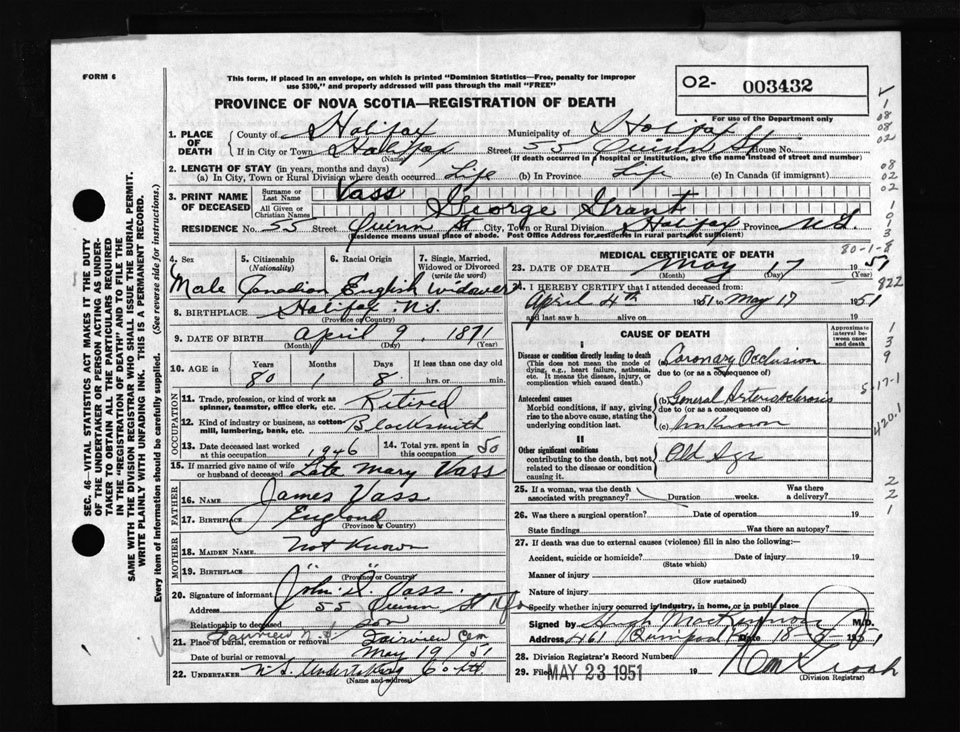 FORM 6
This form, if placed in an envelope, on which is printed "Dominion Statistics—Free, penalty for improper
use $300," and properly addressed will pass through the mail "FREE"
O2- 003432
For use of the Department only
PROVINCE OF NOVA SCOTIA—REGISTRATION OF DEATH
1. PLACE OF DEATH
County of Halifax Municipality of Halifax
If in City or Town Halifax Street 55 Quinn St House No.
(Name) (If death occurred in a hospital or institution, give the name instead of street and number)
2. LENGTH OF STAY (in years, months and days)
(a) In City, Town or Rural Division where death occurred Life (b) In Province Life (c) In Canada (if immigrant)
3. PRINT NAME OF DECEASED
Surname or Last Name Vass
All Given or Christian Names George Grant
RESIDENCE No. 55 Street Quinn St City, Town or Rural Division Halifax Province N.S.
(Residence means usual place of abode. Post Office Address for residents in rural parts not sufficient)
4. Sex 5. Citizenship (Nationality) 6. Racial Origin 7. Single, Married, Widowed or Divorced (write the word)
Male Canadian English Widower
8. BIRTHPLACE Halifax N.S.
9. DATE OF BIRTH April 9, 1871
(Month) (Day) (Year)
10. AGE in Years Months Days If less than one day old
80 1 8 hrs. or min.
OCCUPATION
11. Trade, profession, or kind of work as spinner, teamster, office clerk, etc. Retired
12. Kind of industry or business, as cotton mill, lumbering, bank, etc. Blacksmith
13. Date deceased last worked at this occupation 1946 14. Total yrs. spent in this occupation 50
15. If married give name of wife or husband of deceased Late Mary Vass
FATHER
16. NAME James Vass
17. BIRTHPLACE England
(Province or Country)
MOTHER
18. MAIDEN NAME Not Known
19. BIRTHPLACE " "
(Province or Country)
20. Signature of informant John D. Vass
Address 55 Quinn St
Relationship to deceased son
Fairview
21. Place of burial, cremation or removal Fairview Cem
Date of burial or removal May 19/51
22. UNDERTAKER N.S. Undertaking Co Ltd
(Name and address)
MEDICAL CERTIFICATE OF DEATH
80-1-8
23. DATE OF DEATH May 17 1951
(Month) (Day)
24. I HEREBY CERTIFY that I attended deceased from:
April 4th 1951 to May 17 1951
and last saw h alive on 19
CAUSE OF DEATH
Approximate interval between onset and death
I
Disease or condition directly leading to death
(This does not mean the mode of dying, e.g., heart failure, asthenia, etc. It means the disease, injury, or complication which caused death.)
(a) Coronary Occlusion
due to (or as a consequence of)
Antecedent causes
Morbid conditions, if any, giving rise to the above cause, stating the underlying condition last.
(b) General Arteriosclerosis
due to (or as a consequence of)
(c) Unknown
II
Other significant conditions
contributing to the death, but not related to the disease or condition causing it.
Old Age
25. If a woman, was the death associated with pregnancy? Duration weeks. Was there a delivery?
26. Was there a surgical operation? Date of operation 19
State findings Was there an autopsy?
27. If death was due to external causes (violence) fill in also the following:—
Accident, suicide or homicide? Date of injury 19
(State which)
Manner of injury
(How sustained)
Nature of injury
Specify whether injury occurred in industry, in home, or in public place
Signed by Hugh MacKinnon M.D.
Address 461 Quinpool Date 18-5-1951
28. Division Registrar's Record Number
29. Filed MAY 23 1951 19
(Division Registrar)
SEC. 46—VITAL STATISTICS ACT MAKES IT THE DUTY
OF THE UNDERTAKER OR PERSON ACTING AS UNDER-
TAKER TO OBTAIN ALL THE PARTICULARS REQUIRED
IN THE "REGISTRATION OF DEATH" AND TO FILE THE
SAME WITH THE DIVISION REGISTRAR WHO SHALL ISSUE THE BURIAL PERMIT.
WRITE PLAINLY WITH UNFADING INK. THIS IS A PERMANENT RECORD.
Every item of information should be carefully supplied. (See reverse side for instructions.)
1
08
08
02
08
02
02
1
0
1
3
822
1
3
9
5-17-1
420.1
2
2
1